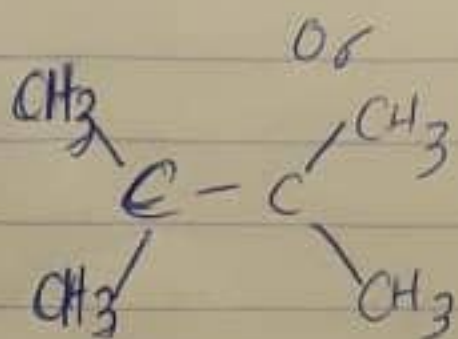 Or
CH3 CH3
C - C
CH3 CH3